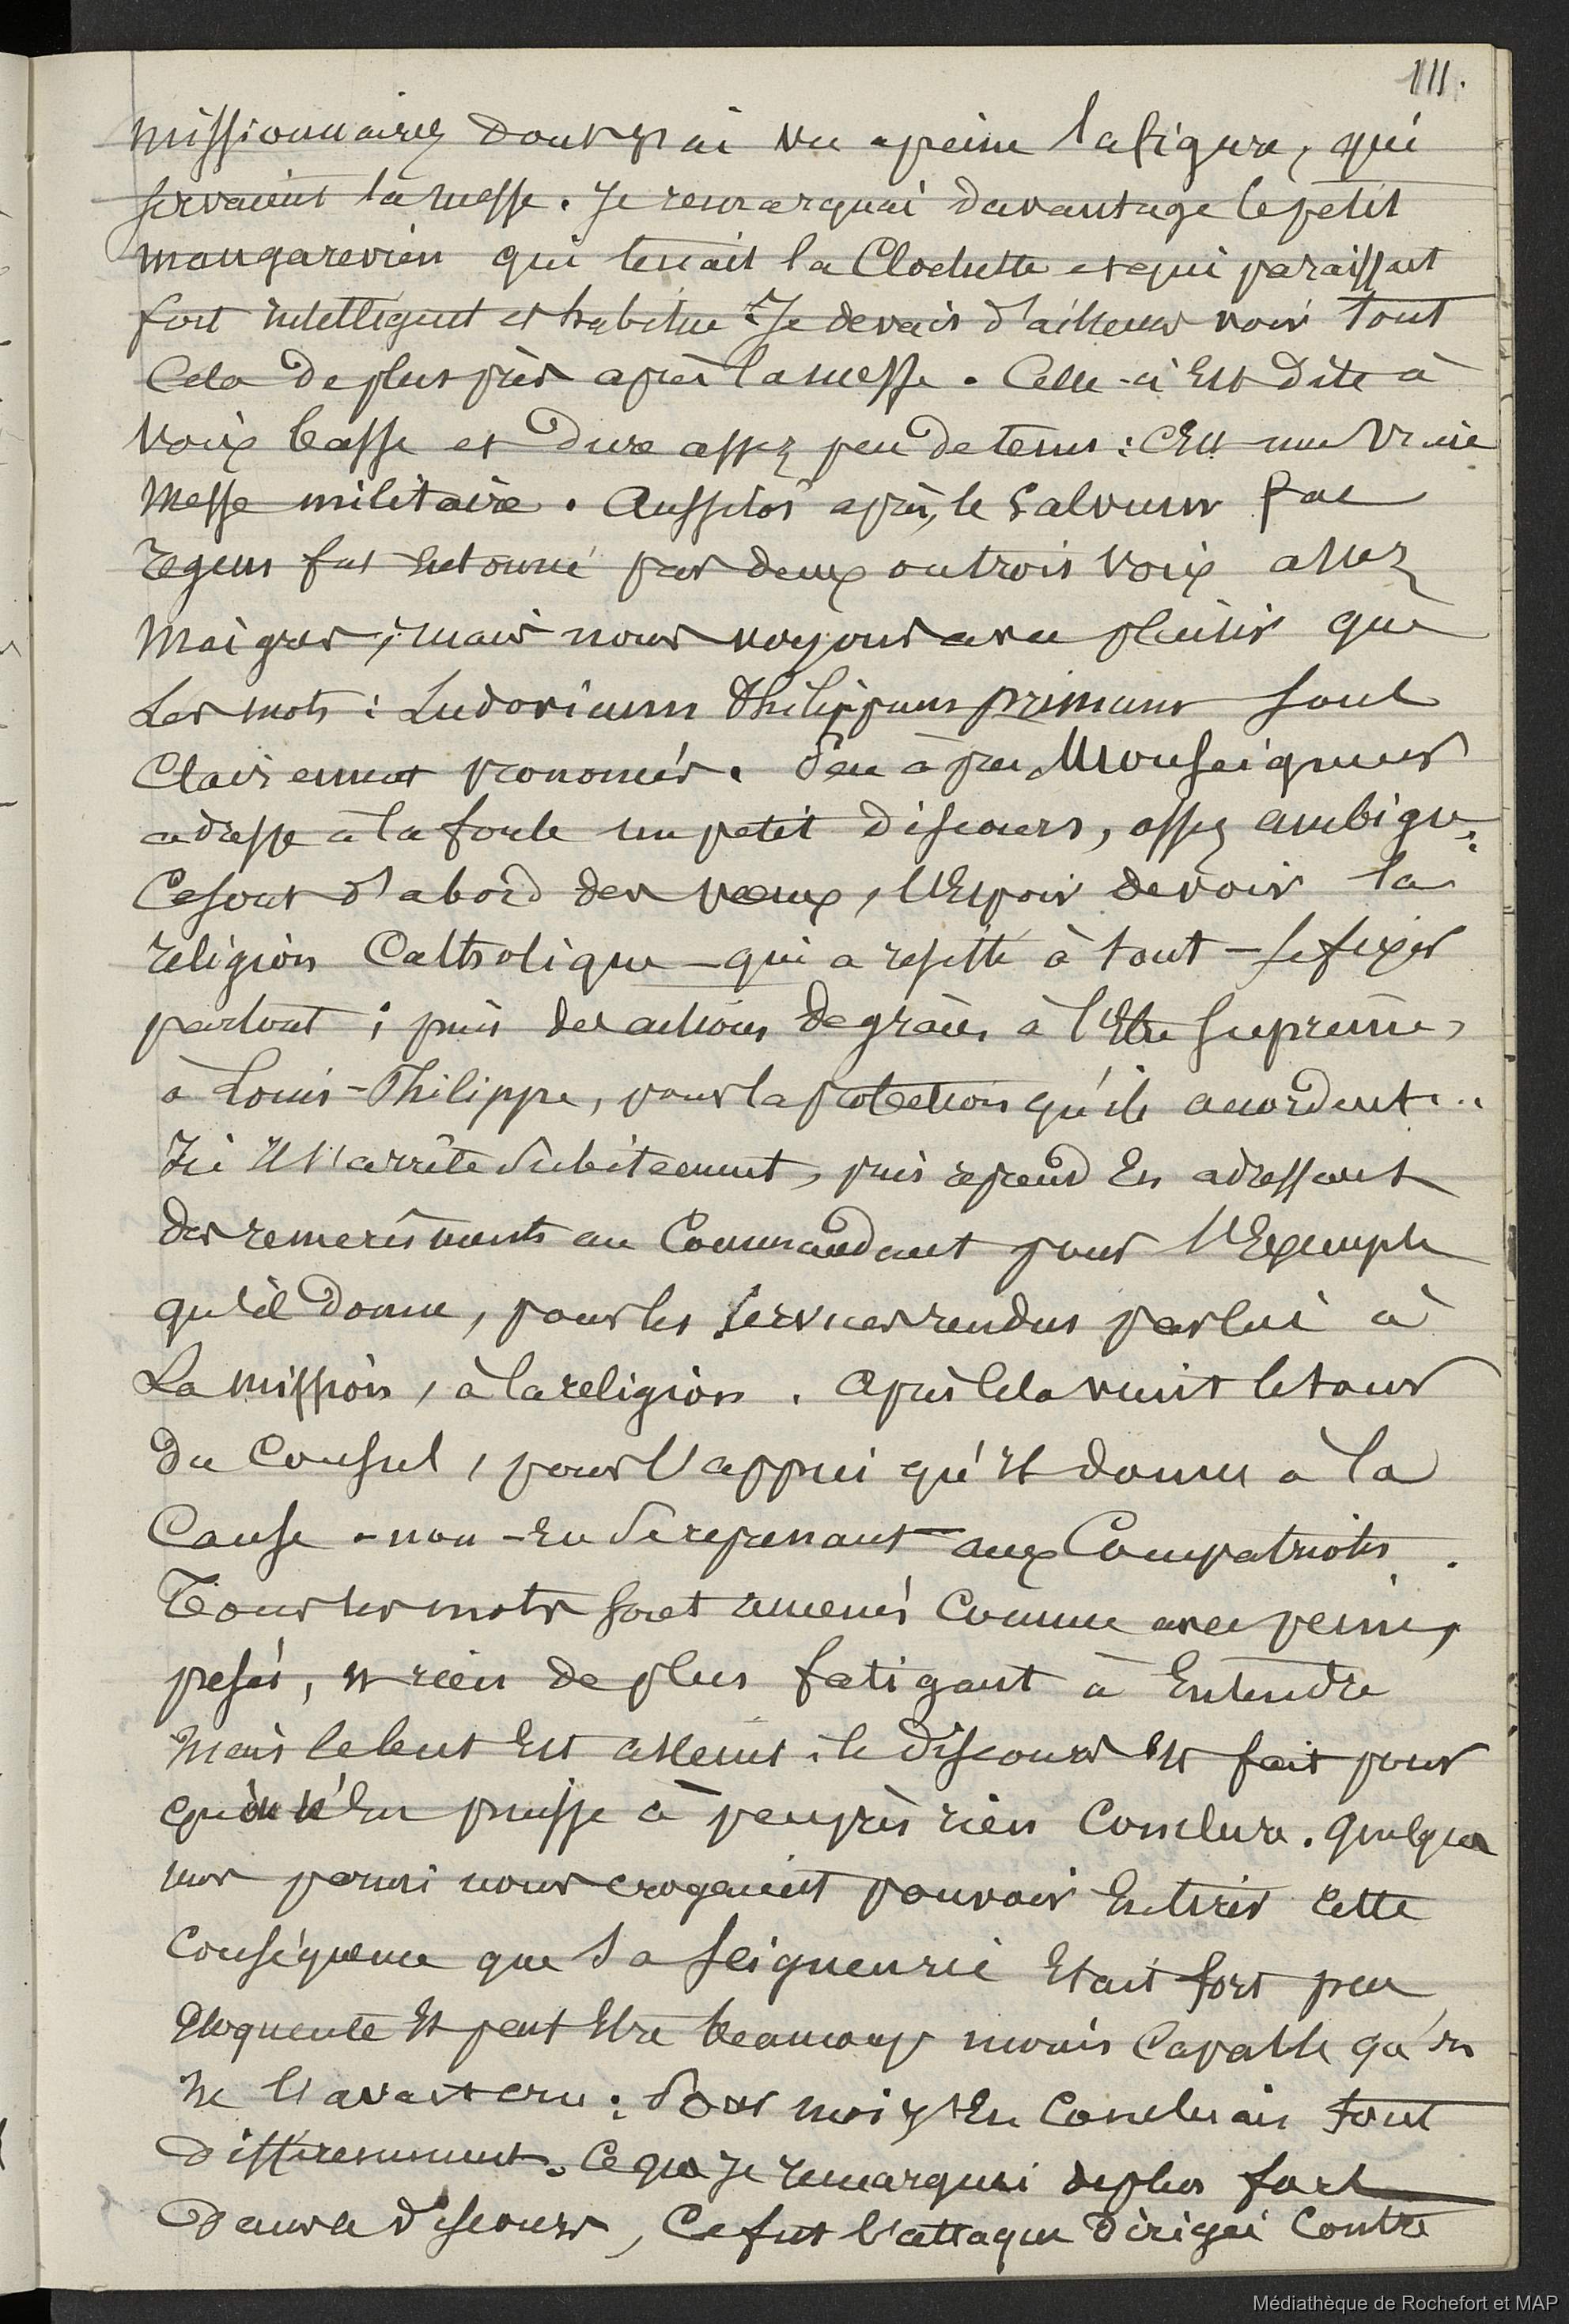 111.
missionnaires dont j'ai vu apeine la figure, qui
servaient la messe. Je remarquai davantage le petit
mangarevien qui tenait la Clochette et qui paraissait
fort intelligent et habitué. Je devais d'ailleurs voir tout
Cela de plus près après la messe. Celle-ci Est dite à
voix basse et dure assez peu de tems : C'Est une vraie
Messe militaire. Aussitôt après, le Salvum fac
regem fut Entonné par deux ou trois voix assez
Maigres ; mais nous voyons avec plaisir que
Les mots : Ludovicum Philippum primum sont
Clairement prononcés. Peu à peu Monseigneur
adresse à la foule un petit discours, assez ambigu.
Ce sont d'abord des vœux, l'Espoir de voir la
religion Catholique - qui a résisté à tout - se fixer
partout ; puis des actions de grâces à l'Etre Suprême,
à Louis-Philippe, pour la protection qu'ils accordent...
Ici Il s'arrête subitement, puis reprend En adressant
des remercîments au Commandant pour l'Exemple
qu'il donne, pour les services rendus par lui à
La mission, à la religion. Après Cela vient le tour
du Consul, pour l'appui qu'Il donne à la
Cause - non - En aux Compatriotes.
Tous les mots sont amenés Comme avec peine,
pesés, et rien de plus fatigant à Entendre
Mais le but Est atteint : le discours Est fait pour
qu'on n'En puisse à peu près rien Conclure. Quelques
uns parmi nous croyaient pouvoir En tirer cette
Conséquence que Sa Seigneurie Etait fort peu
Eloquente Et peut Etre beaucoup moins Capable qu'on
ne l'avait cru : Pour moi j'En Concluais tout
différemment. Ce que Je remarquai de plus fort
Dans le discours, Ce fut l'attaque dirigée Contre
Médiathèque de Rochefort et MAP